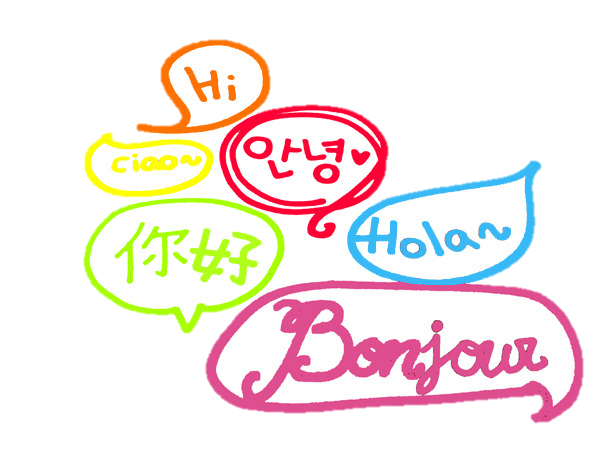 Hi
ciao~
안녕♥
你好
Hola~
Bonjour